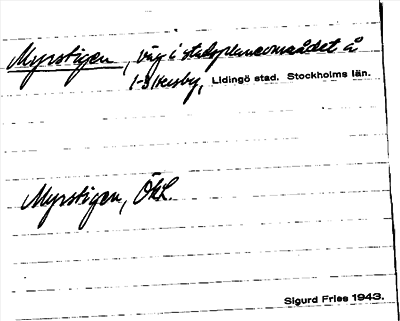 Myrstigen, väg i stadsplaneområdet å
Lidingö stad. Stockholms län.
Myrstigen, ÖkL.
Sigurd Fries 1943.